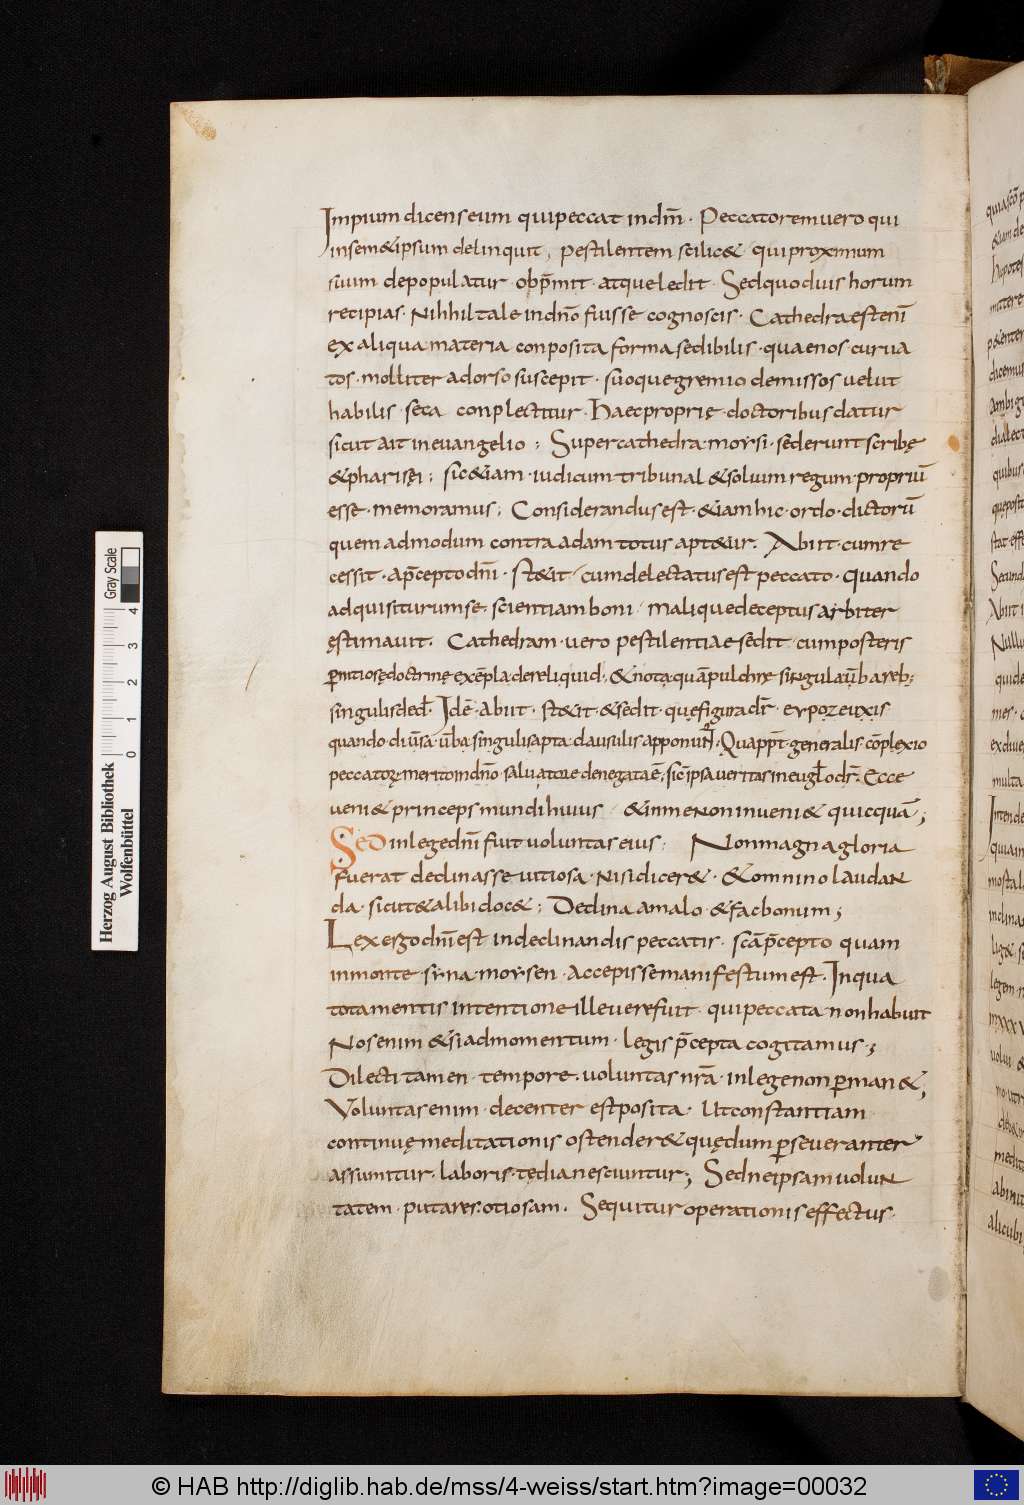 Impium dicens eum qui peccat in dnm̄ · Peccatorem vero qui
in sem& ipsum delinquit; pestilentem scilic& qui proximum
suum depopulatur · obp̄mit · atque ledit · Sed quoduis horum
recipias · Nihhil tale in dnō fuisse cognoscis · Cathedra est eni̅
ex aliqua materia conposita forma sedibilis · quae nos curua
tos · molliter a dorso suscepit · suoque gremio demissos uelut
habilis · seca conplectitur · Haec proprię · doctoribus datur
sicut ait in euangelio ; Super cathedra · moysi · sederunt scribę
& pharisęi ; sic &iam · iudicum tribunal & solium regum · propriū
esse · memoramus ; Considerandus est · &iam hic · ordo · dictorū
quem ad modum contra adam totus apt&ur · Abiit · cum re
cessit · a p̄cepto dnī · st&it / cum delectatus est peccato · quando
adquisiturum se · scientiam boni / malique deceptus arbiter
ęstimauit · Cathedram · vero pestilentiae sedit · cum posteris
pernitiosę doctrinę exēpla dereliquid · & nota quā pulchrę singula uba reb;
singulis ded · Idē · abiit · st&it · & sedit · quę figura dr̄ · eypozeuxis
quando diūsa ūba singulis apta clausulis apponunt · Qua ppt̄ · generalis · cōplexio
peccatorę merito in dnō saluatore denegata ē; sic ipsa ueritas in eugl̄o dr̄ · Ecce
ueni& princeps mundi huius / & in me non inueni& quicquā;
Sed in lege dnī fuit uoluntas eius ; Non magna gloria
fuerat declinasse uitiosa · nisi dicer& · & omnino laudan
da · sicut & alibi doc& ; Declina a malo · & fac bonum ;
Lex ergo dnī est in declinandis peccatis · scā p̄cepto quam
in monte · syna · moysen · accepisse manifestum est · In qua
tota mentis intentione ille uere fuit · qui peccata non habuit
Nos enim & si ad momentum · legis p̄cepta cogitamus ;
Dilecti tamen · tempore · uoluntas nrā · in lege non perman&;
Voluntas enim · decenter est posita · Ut constantiam
continuę meditationis ostender& quędum perseueranter
assumitur · laboris · tędia nesciuntur ; Sed ne ipsam uolun
tatem · putares · otiosam · Sequitur operationis effectus ·
Herzog August Bibliothek
Wolfenbüttel
Gray Scale
0 1 2 3 4
© HAB http://diglib.hab.de/mss/4-weiss/start.htm?image=00032